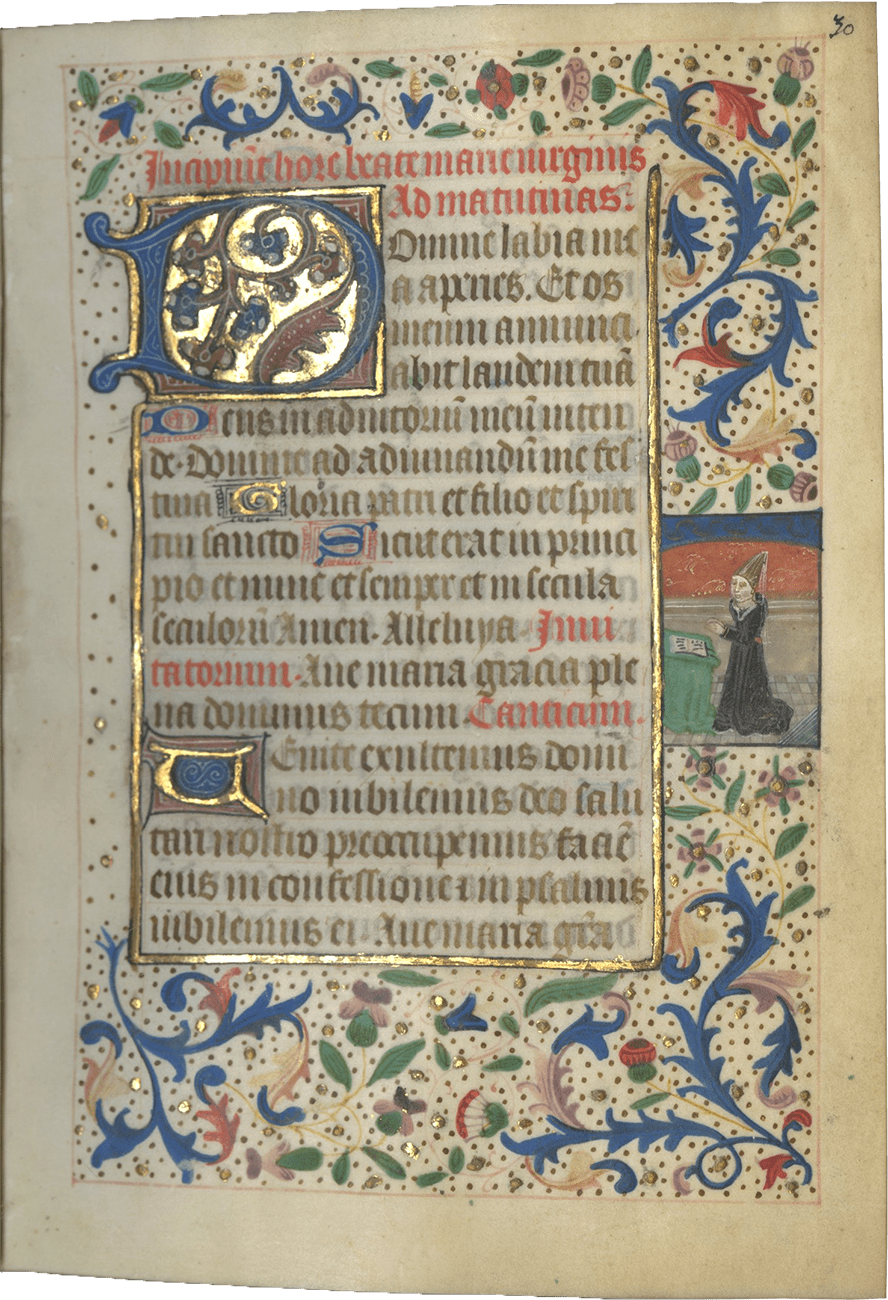 30
Incipiūt hore beate marie uirginis
Ad matutinas:
Domine labia me
a aperies. Et os
meum annunci
abit laudem tuā
Deus in adiutoriū meū inten
de. Domine ad adiuuandū me fes
tina Gloria patri et filio et spiri
tui sancto Sicut erat in princi
pio et nunc et semper et in secula
seculorū Amen. Alleluya. Inui
tatorium. Aue maria gracia ple
na dominus tecum Canticum.
Uenite exultemus domi
no iubilemus deo salu
tari nostro preoccupemus faciē
eius in confessione ⁊ in psalmis
iubilemus ei Aue maria gr̄a